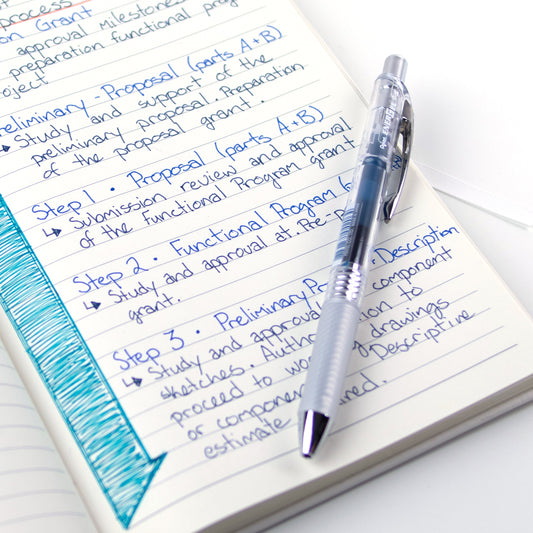 process
on Grant
approval milestone
preparation functional prog
oject
reliminary - Proposal (parts A+B)
↳ Study and support of the
preliminary proposal. Preparation
of the proposal grant.
Step 1 • Proposal (parts A+B)
↳ Submission review and approval
of the Functional Program grant
Step 2 • Functional Program (
↳ Study and approval at. Pre-P
grant.
Step 3 • Preliminary Pr Description
↳ Study and approva component
sketches. Auth ion to
proceed to wo g drawings
or componen Descriptive
estimate ired.
Pentel ENERGEL